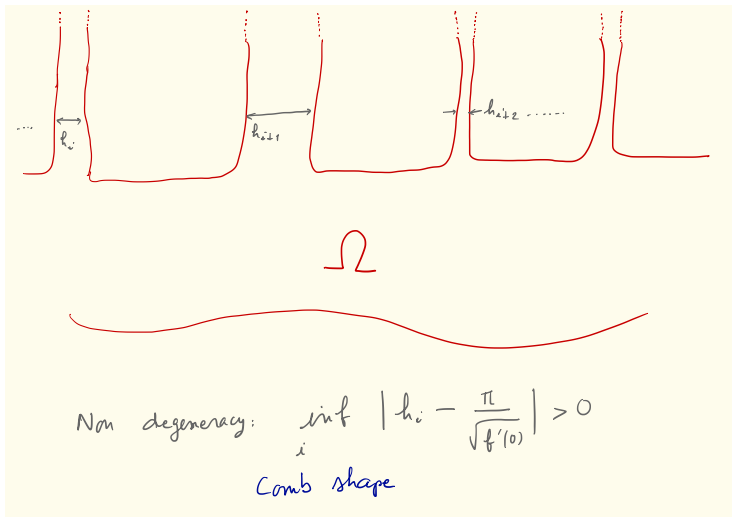 .... h_i h_{i+1} h_{i+2} ........
Ω
Non degeneracy: inf_i | h_i - π / √f'(0) | > 0
Comb shape